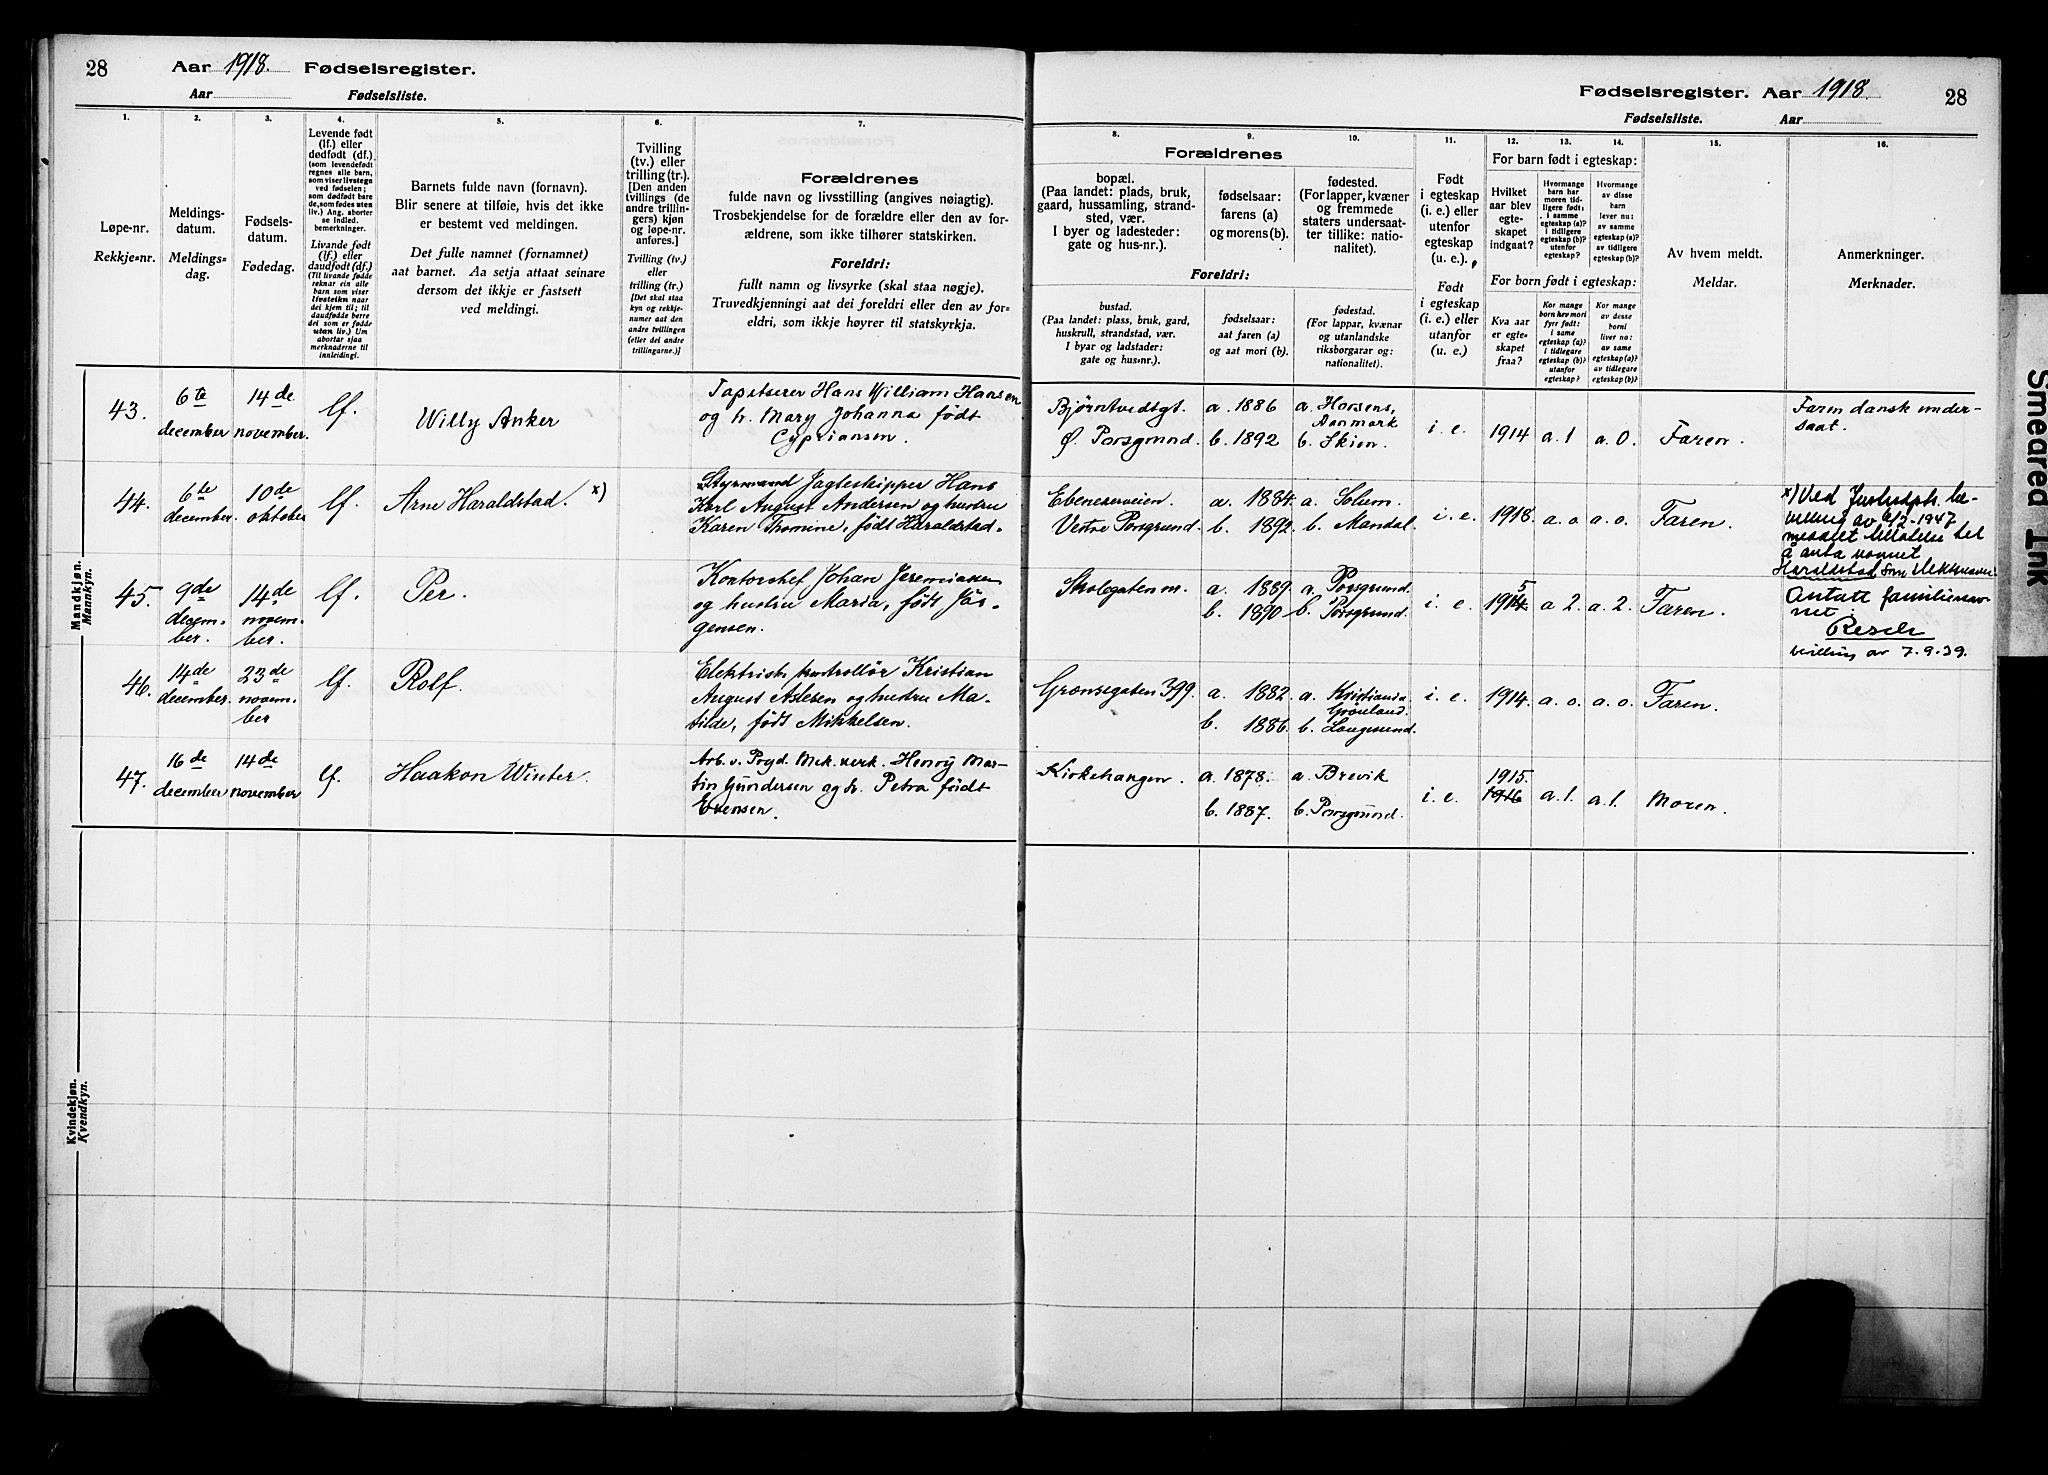 28 Aar 1918. Fødselsregister.
Aar Fødselsliste.
Fødselsregister. Aar 1918. 28
Fødselsliste. Aar
1. 2. 3. 4. 5. 6. 7.
Løpe-nr.
Rekkje-nr.
Meldings-
datum.
Meldings-
dag.
Fødsels-
datum.
Fødedag.
Levende født
(lf.) eller
dødfødt (df.)
(som levendefødt
regnes alle barn,
som viser livstegn
ved fødselen;
som dødfødt bare
de, som fødes uten
liv.) Ang. aborter
se indled.
bemerkninger.
Livande født
(lf.) eller
daudfødt (df.)
(Til livande fødde
reknar ein alle
barn som viser
livsteikn naar
dei kjem til; til
daudfødde berre
dei som er fødde
utan liv.) Um
abortar sjaa
merknaderne til
innleidingi.
Barnets fulde navn (fornavn).
Blir senere at tilføie, hvis det ikke
er bestemt ved meldingen.
Det fulle namnet (fornamnet)
aat barnet. Aa setja attaat seinare
dersom det ikkje er fastsett
ved meldingi.
Tvilling
(tv.) eller
trilling (tr.)
[Den anden
tvillings (de
andre trillin-
gers) kjøn
og løpe-nr.
anføres.]
Tvilling (tv.)
eller
trilling (tr.)
[Det skal staa
kyn og rekkje-
numer aat den
andre tvillingen
(eller dei andre
trillingarne.)]
Forældrenes
fulde navn og livsstilling (angives nøiagtig).
Trosbekjendelse for de forældre eller den av for-
ældrene, som ikke tilhører statskirken.
Foreldri:
fullt namn og livsyrke (skal staa nøgje).
Truvedkjenningi aat dei foreldri eller den av for-
eldri, som ikkje høyrer til statskyrkja.
8. 9. 10. 11. 12. 13. 14. 15. 16.
Forældrenes
bopæl.
(Paa landet: plads, bruk,
gaard, hussamling, strand-
sted, vær.
I byer og ladesteder:
gate og hus-nr.).
fødselsaar:
farens (a)
og morens (b).
fødested.
(For lapper, kvæner
og fremmede
staters undersaat-
ter tillike: natio-
nalitet).
Foreldri:
bustad.
(Paa landet: plass, bruk, gard,
huskrull, strandstad, vær.
I byar og ladstader:
gate og hus-nr.).
fødselsaar:
aat faren (a)
og aat mori (b).
fødestad.
(For lappar, kvænar
og utanlandske
riksborgarar og:
nationalitet).
Født
i egteskap
(i. e.) eller
utenfor
egteskap
(u. e.).
Født
i egteskap
(i. e.) eller
utanfor
(u. e.)
For barn født i egteskap:
Hvilket
aar blev
egte-
skapet
indgaat?
Hvormange
barn har
moren tid-
ligere født:
i samme
egteskap (a)?
i tidligere
egteskap (b)?
utenfor
egteskap?
Hvormange
av disse
barn
lever nu:
av samme
egteskap (a)?
av tidligere
egteskap (b)?
For born født i egteskap:
Kva aar
er egte-
skapet
fraa?
Kor mange
born hev mori
fyrr født:
i same
egteskap (a)?
i tidlegare
egteskap (b)?
utanfor
egteskap?
Kor mange
av desse
borni
liver no:
av same
egteskap (a)?
av tidlegare
egteskap (b)?
Av hvem meldt.
Meldar.
Anmerkninger.
Merknader.
Mandkjøn.
Mannkyn.
43. 6te december 14de november. lf. Willy Anker
Tapetserer Hans William Hansen
og h. Mary Johanna født
Cypriansen.
Bjørntvedtgt.
Ø. Porsgrund.
a. 1886
b. 1892
a. Horsens, Danmark
b. Skien.
i. e. 1914 a. 1 a. 0. Faren.
Faren dansk under-
saat.
44. 6te december. 10de oktober lf. Arne Haraldstad. x)
Styrmand Jagteskipper Hans
Karl August Andersen og hustru
Karen Tromine, født Haraldstad.
Ebeneserveien.
Vestre Porsgrund.
a. 1884.
b. 1892.
a. Solum.
b. Mandal.
i. e. 1918. a. o. a. o. Faren.
x) Ved Justisdph. be-
villing av 6/2-1947
meddelt tillatelse til
å anta navnet
Haraldstad som slektsnavn.
45. 9de decem-ber. 14de novem-ber. lf. Per.
Kontorchef Johan Jeremiassen
og hustru Maria, født Jör-
gensen.
Skolegaten
a. 1889.
b. 1890
a. Porsgrund.
b. Porsgrund.
i. e. 1914 5 a 2. a. 2. Faren.
Antatt familienav-
net
Resch
bevilling av 7.9.39.
46. 14de december. 23de novem-ber lf. Rolf.
Elektrisk kontrollör Kristian
August Aslesen og hustru Ma-
tilde, født Mikkelsen.
Grænsegaten 399.
a. 1882.
b. 1886.
a. Kristiania Grönland.
b. Langesund.
i. e. 1914. a. o. a. o. Faren.
47. 16de december 14de november lf. Haakon Winter.
Arb. v. Prgd. Mek. verk. Henry Mar-
tin Gundersen og h. Petra født
Evensen.
Kirkehaugen.
a. 1878.
b. 1887.
a. Brevik
b. Porsgrund.
i. e. 1915. 1916 a. 1. a. 1. Moren.
Kvindekjøn.
Kvendkyn.
Smeared Ink